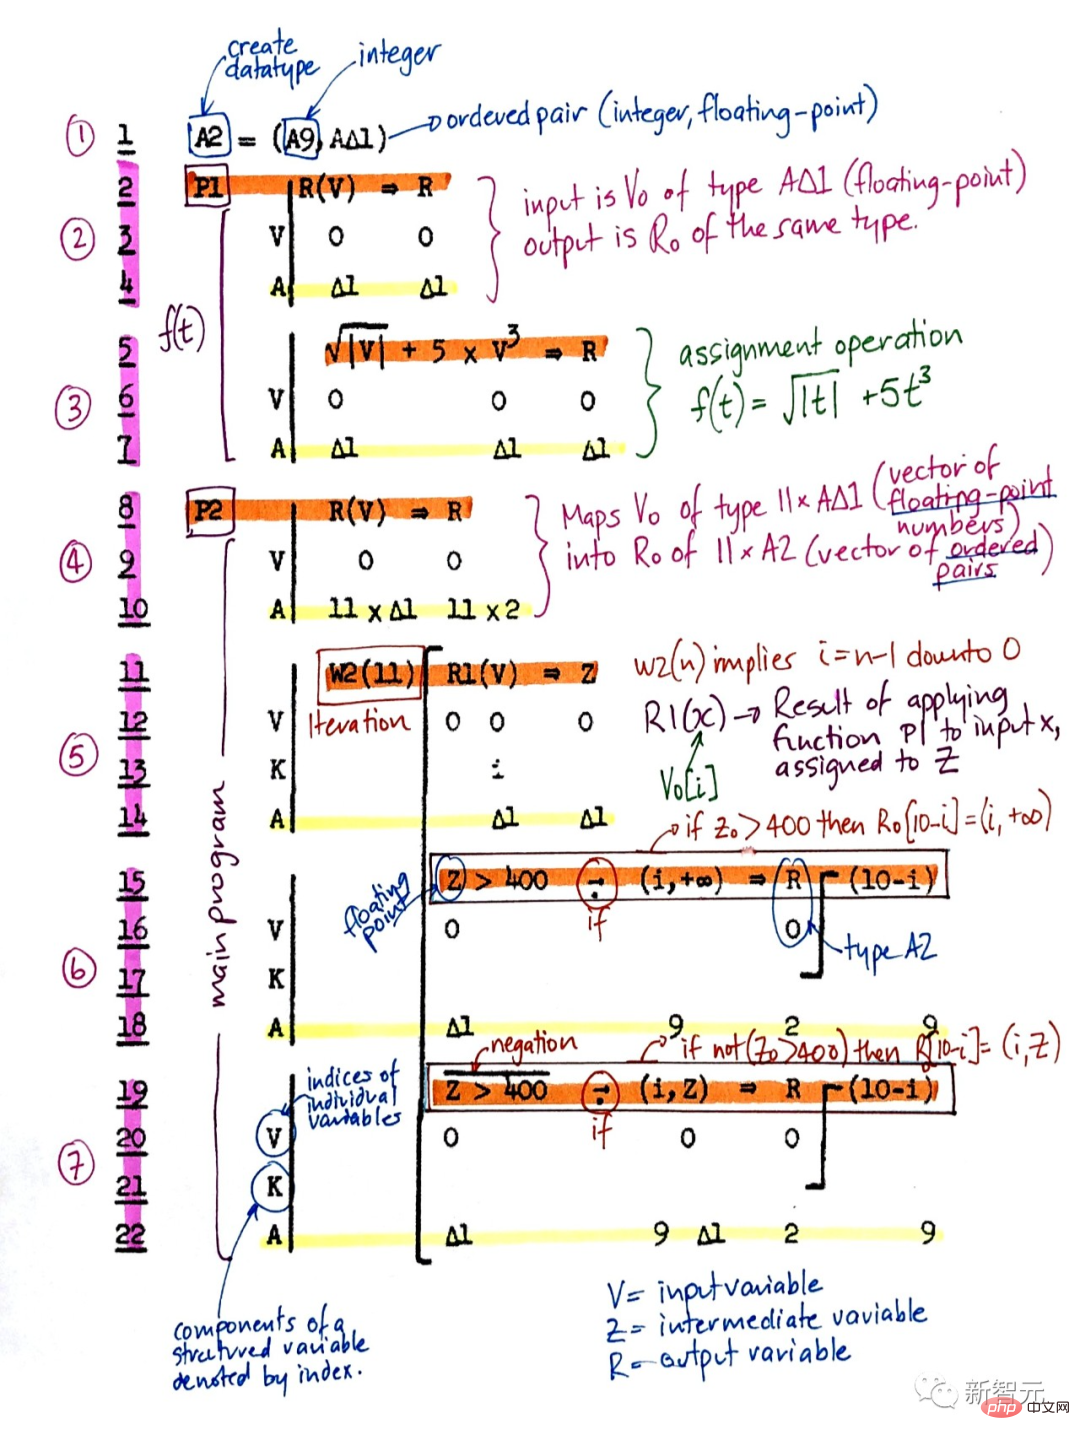 create
datatype
integer
① 1 A2 = (A9, AΔ1) ordered pair (integer, floating-point)
2 P1 R(V) ⇒ R
② 3 V 0 0
4 A Δ1 Δ1
input is V₀ of type AΔ1 (floating-point)
output is R₀ of the same type.
f(t)
5 √|V| + 5 × V³ ⇒ R
③ 6 V 0 0 0
7 A Δ1 Δ1 Δ1
assignment operation
f(t) = √|t| + 5t³
8 P2 R(V) ⇒ R
④ 9 V 0 0
10 A 11 × Δ1 11 × 2
Maps V₀ of type 11 × AΔ1 (vector of
floating-point
numbers)
into R₀ of 11 × A2 (vector of ordered
pairs)
main program
11 W2(11) R1(V) ⇒ Z
12 V Iteration 0 0 0
⑤ 13 K i
14 A Δ1 Δ1
w2(n) implies i = n-1 downto 0
R1(x) → Result of applying
function P1 to input x,
assigned to Z
V₀[i]
if Z₀ > 400 then R₀[10-i] = (i, +∞)
15 Z > 400 → (i,+∞) ⇒ R (10-i)
floating
point
16 V 0 if 0 type A2
⑥ 17 K
18 A Δ1 9 2 9
negation
if not (Z₀ > 400) then R[10-i] = (i, Z)
19 Z > 400 → (i,Z) ⇒ R (10-i)
indices of
individual
variables
20 V 0 if 0 0
⑦ 21 K
22 A Δ1 9 Δ1 2 9
components of a
structured variable
denoted by index.
V = input variable
Z = intermediate variable
R = output variable
新智元
php 中文网